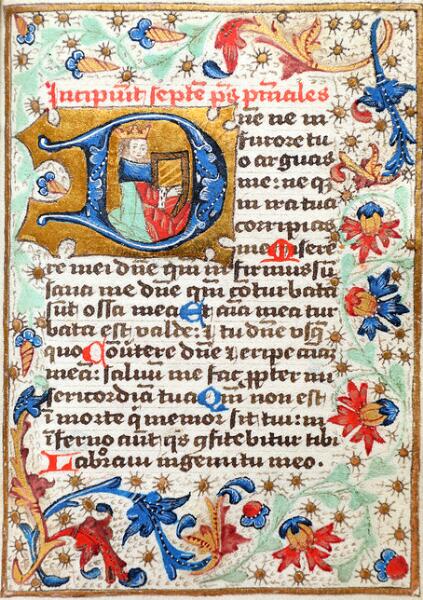 Incipiūt septē ps pn̄iales
Dn̄e ne in
furore tu
o arguas
me : ne qꝫ
in ira tua
corripias
me Misere
re mei dn̄e qm̄ infirmus sū
sana me dn̄e qm̄ cōturbata
sūt ossa mea Et aīa mea tur
bata est valde : ⁊ tu dn̄e vsqꝫ
quo Cōūtere dn̄e ⁊ eripe aīaꝫ
meā : saluū me fac ꝓpter mi
sericordiā tuā Qm̄ non est
ī morte q̄ memor sit tui : in
īferno aūt qˢ ꝯfitebitur tibi
Laboraui in gemitu meo .